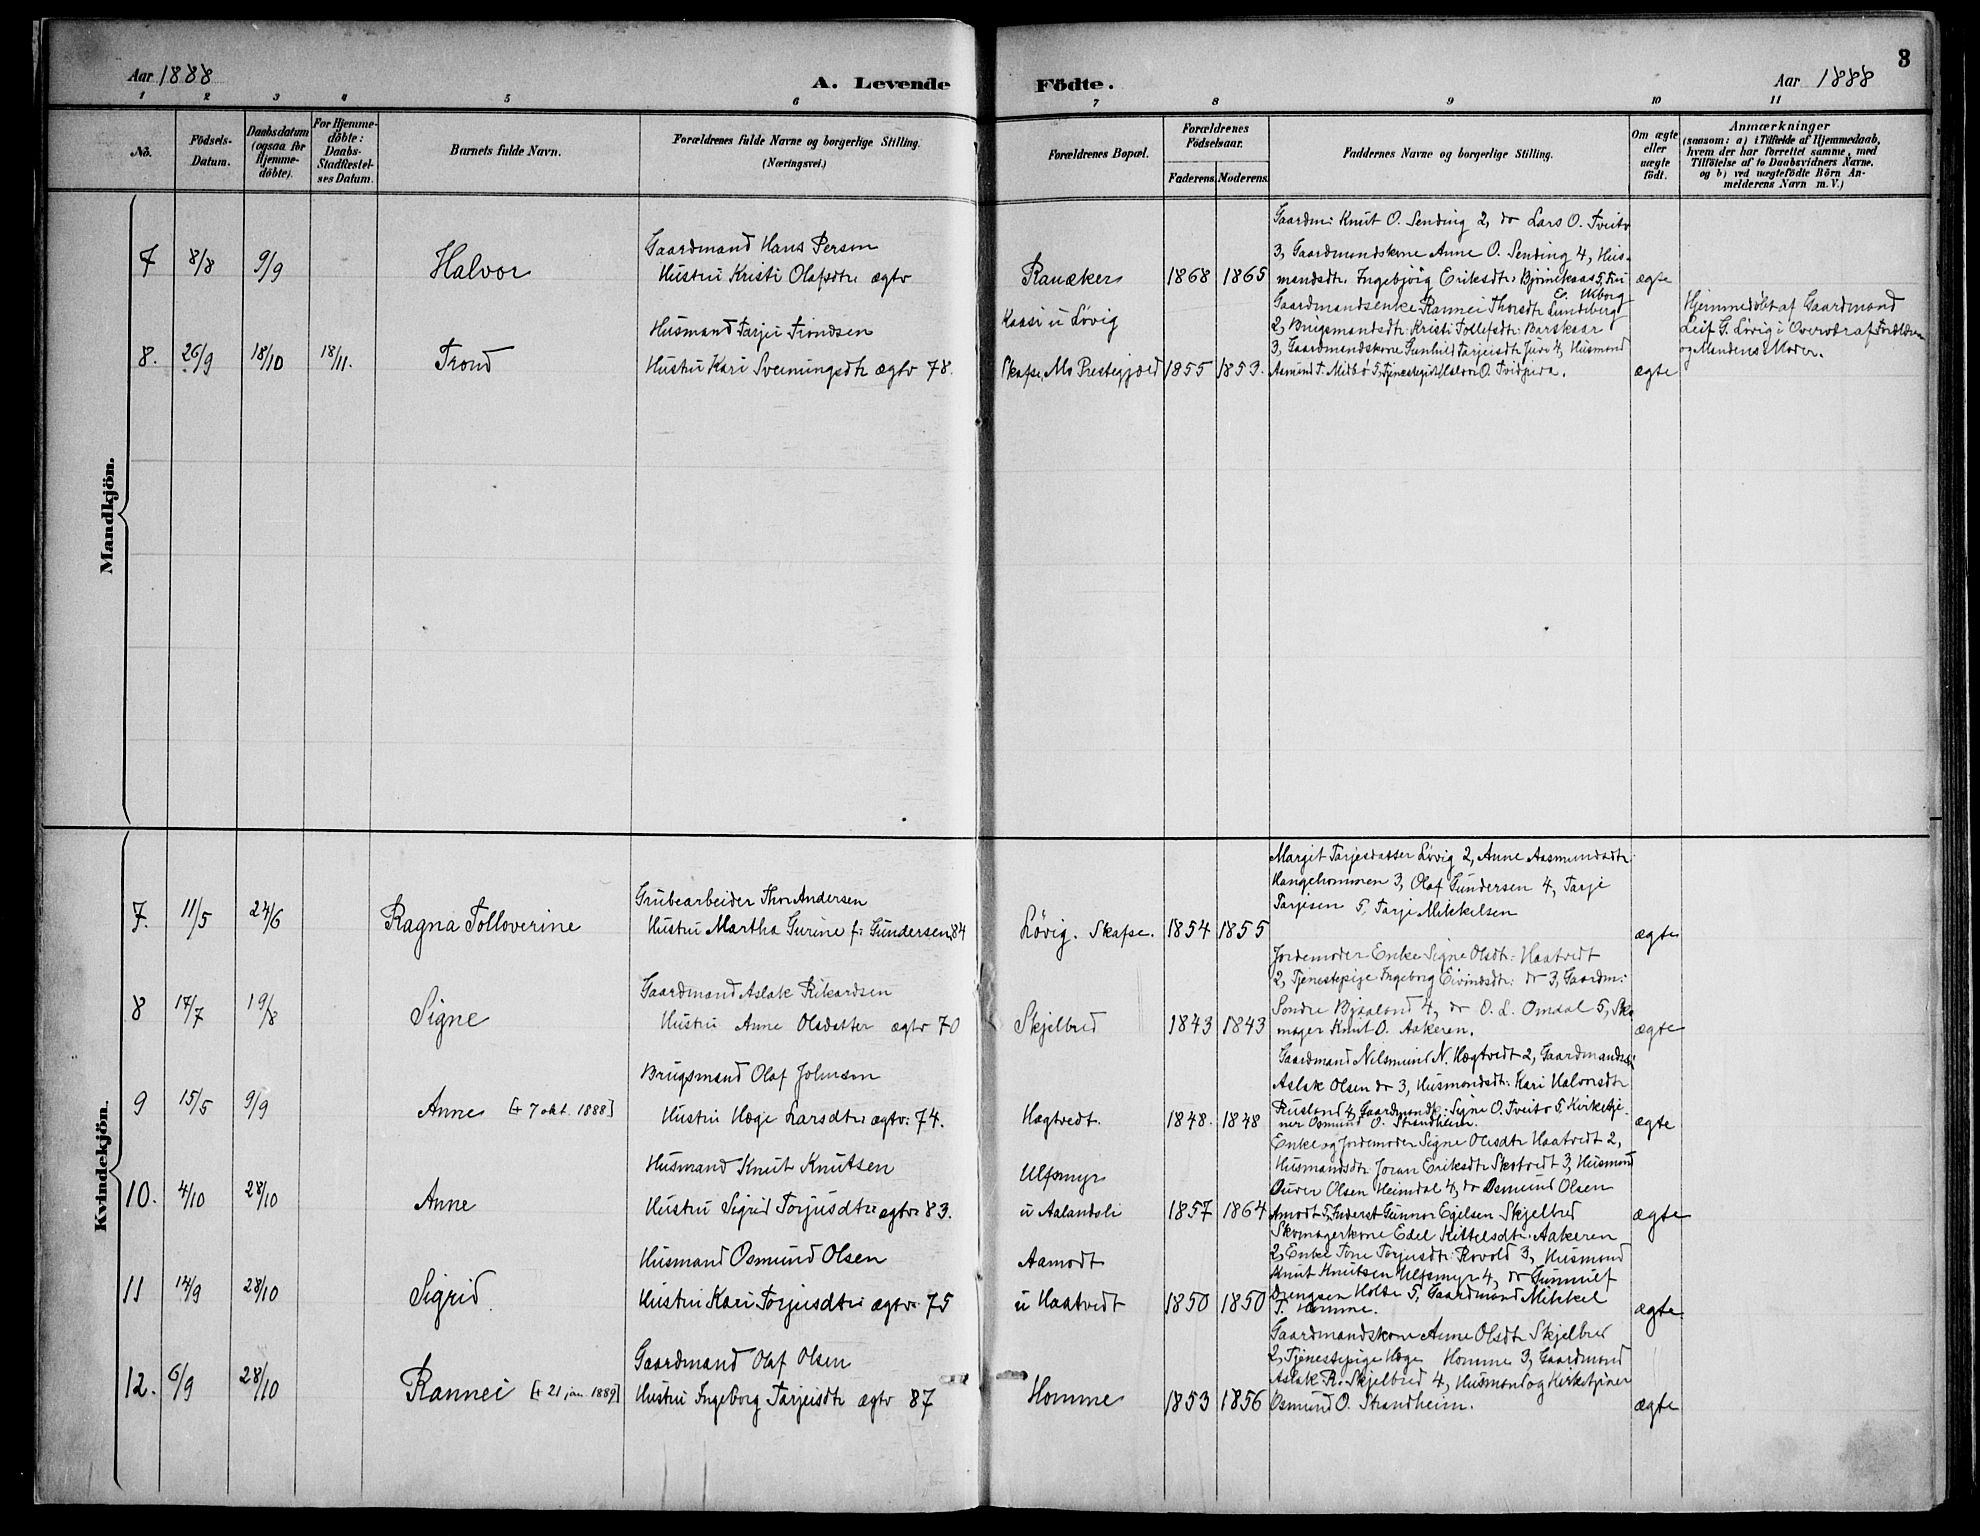 Aar 1888
A. Levende
Födte.
Aar 1888
3
1 2 3 4 5 6 7 8 9 10 11
No.
Födsels-
Datum.
Daabsdatum
(ogsaa for
Hjemme-
döbte).
For Hjemme-
döbte:
Daabs-
Stadfæstel-
ses Datum.
Barnets fulde Navn.
Forældrenes fulde Navne og borgerlige Stilling.
(Næringsvei.)
Forældrenes Bopæl.
Forældrenes
Födselsaar.
Faderens. Moderens.
Faddernes Navne og borgerlige Stilling.
Om ægte
eller
uægte
födt.
Anmærkninger
(saasom: a) i Tilfælde af Hjemmedaab,
hvem der har forrettet samme, med
Tilföielse af to Daabsvidners Navne.
og b) ved uægtefödte Börn An-
melderens Navn m. V.)
Mandkjön.
7 8/8 9/9
Halvor
Gaardmand Hans Person
Hustru Kristi Olafsdtr ægtv
Rauæker
1868 1865
Gaardm: Knut O. Sending 2, do Lars O. Tveito
3, Gaardmandskone Anne O. Sending 4, Hus-
mandsdtr. Ingebjörg Eriksdtr: Björnekaas 5, Fru
E. Ukborg
ægte
8. 26/9 18/10 18/11.
Trond
Husmand Tarjei Trondsen
Hustru Kari Sveinungsdtr ægtv 78.
Kaasi u Lövig
Skafse, Mo Prestegjæld
1855 1853.
Gaardmandsenke Rannei Thorsdtr Lundeberg
2, Brugsmandsdtr: Kristi Tollefsdtr: Barskaar
3, Gaardmandskone Gunhild Tarjeisdtr Juve 4, Husmand
Asmund T. Midbö 5, Tjenestegut Halvor O.
ægte
Hjemmedöbt af Gaardmand
Leif G. Lövig i Overvær af Forældrene
og Mandens Moder.
Kvindekjön.
7. 11/5 24/6
Ragna Tolloverine
Grubearbeider Thor Andersen
Hustru Martha Gurine f: Gundersen, 84
Lövig. Skafse.
1854 1855
Margit Tarjesdatter Lövig 2, Anne Aasmundsdtr:
Hangehommen 3, Olaf Gundersen 4, Tarje
Tarjesen 5, Tarje Mikkelsen
ægte
8 17/7 19/8
Signe
Gaardmand Aslak Rikardsen
Hustru Anne Olsdatter ægtv 70
Skjelbred
1843 1843
Jordemoder Enke Signe Olsdtr: Haatvedt
2, Tjenestepige Ingeborg Eivindsdtr: do 3, Gaardm:
Sondre Bjaaland 4, do O. L. Omdal 5, Sko
mager Knut O. Aakeren.
ægte
9 15/5 9/9
Anne [+ 7 okt. 1888]
Brugsmand Olaf Johnsen
Hustru Hæge Larsdtr: ægtv: 74.
Hægtvedt.
1848. 1848
Gaardmand Nilsmund N. Hægtvedt 2, Gaardmandss:
Aslak Olsen do 3, Husmandsdtr: Kari Halvorsdtr
Rusland 4, Gaardmandsp: Signe O. Tveito 5, Kirketje-
ner Osmund O. Strandheim.
ægte
10. 4/10 28/10
Anne
Husmand Knut Knutsen
Hustru Sigrid Torjusdtr: ægtv: 83.
Ulfsmyr
u Aalandsli
1857 1864
Enke og Jordemoder Signe Olsdtr Haatvedt 2,
Husmandsdtr: Joran Eriksdtr Skotvedt 3, Husmand
Duver Olsen Heimdal 4, do Osmund Olsen
Amodt 5, Inderst Gunnar Egelsen Skjelbred
ægte
11 14/9 28/10
Sigrid.
Husmand Osmund Olsen
Hustru Kari Torjusdtr: ægtv: 75
Aamodt
u Haatvedt
1850 1850
Skomagerkone Edel Kittelsdtr: Aakeren
2, Enke Tone Torjusdtr: Rovold 3, Husmand
Knut Knutsen Ulfsmyr 4, do Gunnulf
Drengsen Holte 5, Gaardmand Mikkel
T. Homme.
ægte
12. 6/9 28/10
Rannei [+ 21 jan. 1889]
Gaardmand Olaf Olsen
Hustru Ingeborg Tarjeisdtr ægtv 87
Homme
1853 1856
Gaardmandskone Anne Olsdtr Skjelbred
2, Tjenestepige Hæge Homme 3, Gaardmand
Aslak R. Skjelbred 4, Husmand og Kirketjener
Osmund O. Strandheim.
ægte